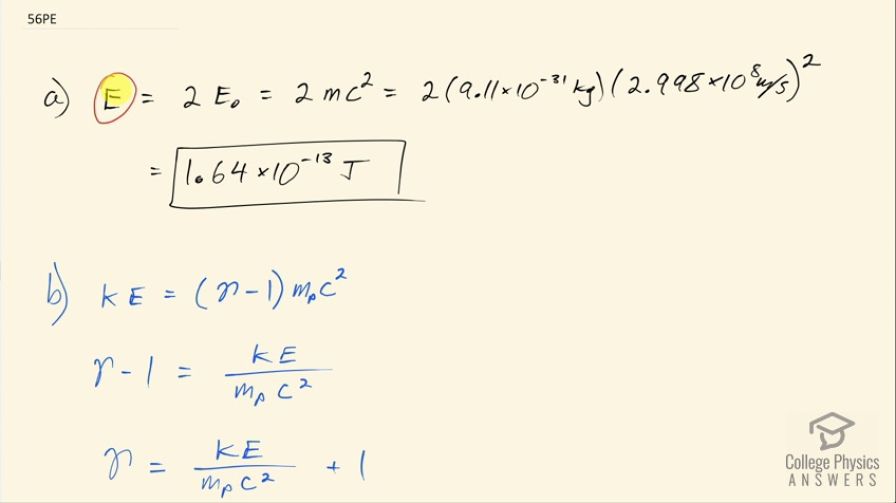 56PE
a) E = 2 E₀ = 2 mc² = 2 (9.11×10⁻³¹ kg)(2.998×10⁸ m/s)²
= 1.64×10⁻¹³ J
b) KE = (γ-1) mₚc²
γ-1 = KE / mₚc²
γ = KE / mₚc² + 1
College Physics
ANSWERS